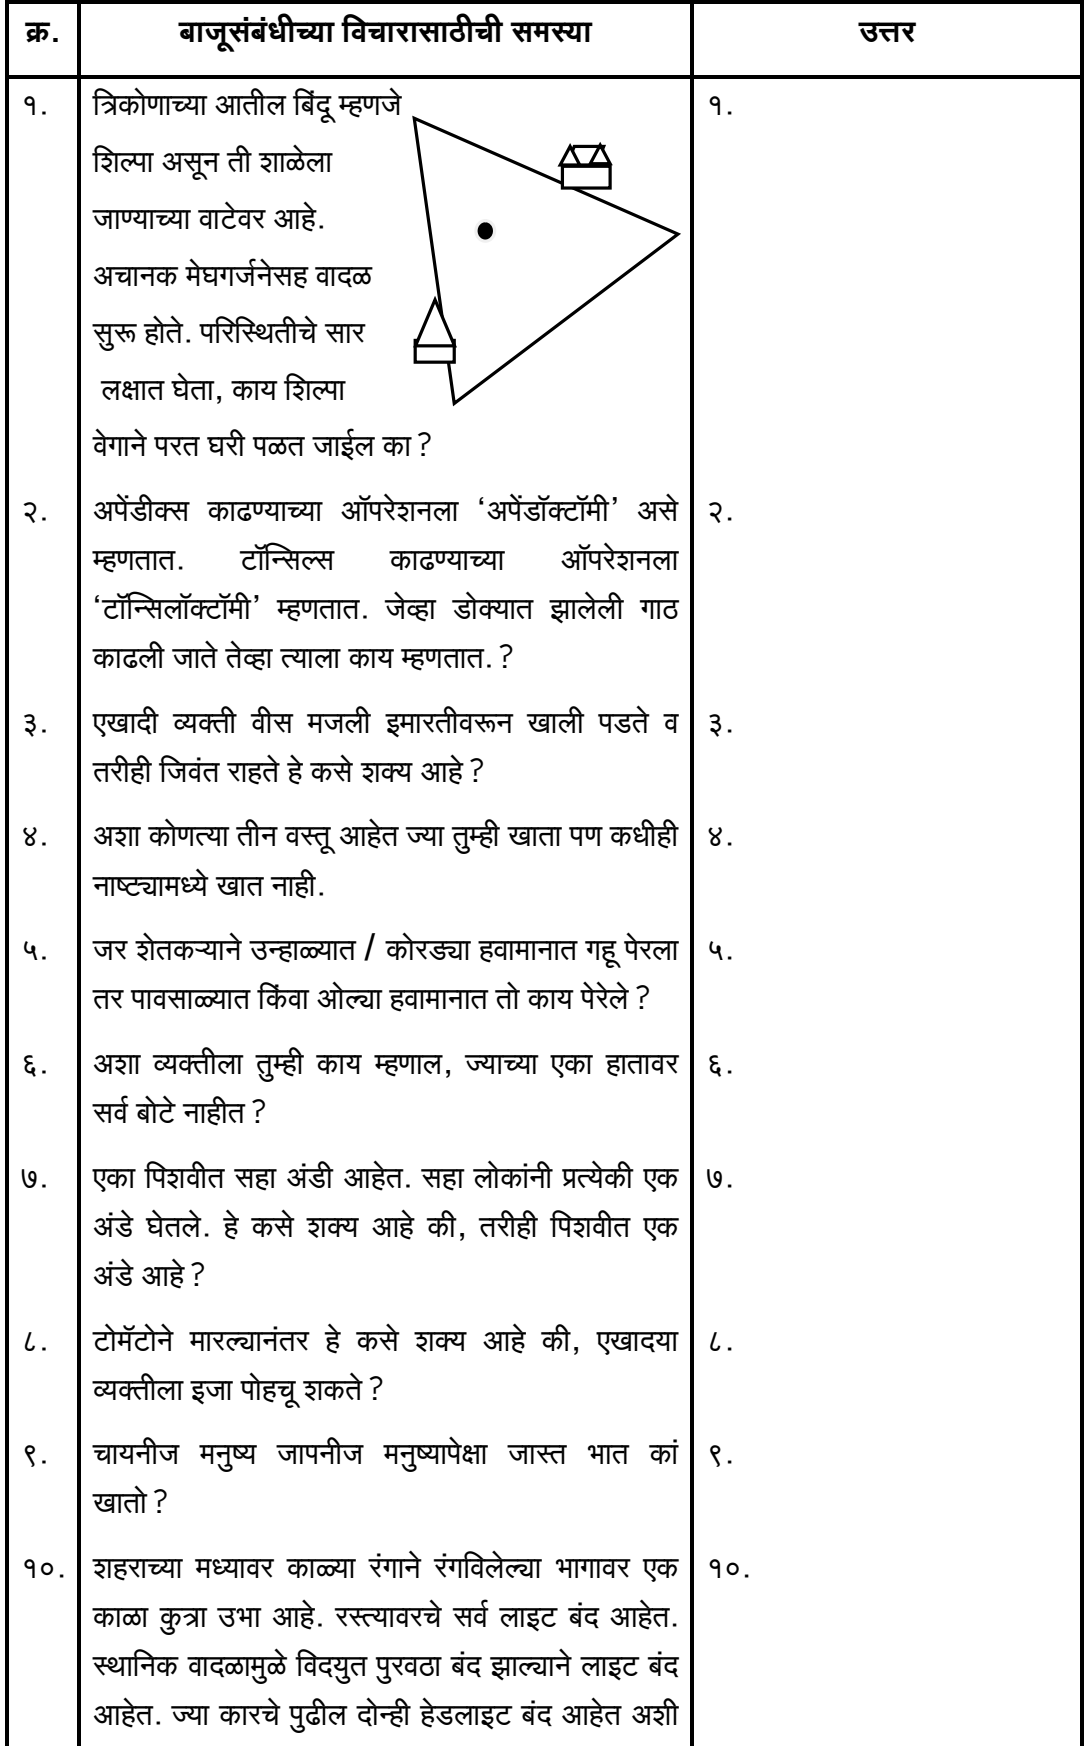 क्र. बाजूसंबंधीच्या विचारासाठीची समस्या उत्तर
१. त्रिकोणाच्या आतील बिंदू म्हणजे १.
शिल्पा असून ती शाळेला
जाण्याच्या वाटेवर आहे.
अचानक मेघगर्जनेसह वादळ
सुरू होते. परिस्थितीचे सार
लक्षात घेता, काय शिल्पा
वेगाने परत घरी पळत जाईल का ?
२. अपेंडीक्स काढण्याच्या ऑपरेशनला ‘अपेंडॉक्टॉमी’ असे २.
म्हणतात. टॉन्सिल्स काढण्याच्या ऑपरेशनला
‘टॉन्सिलॉक्टॉमी’ म्हणतात. जेव्हा डोक्यात झालेली गाठ
काढली जाते तेव्हा त्याला काय म्हणतात. ?
३. एखादी व्यक्ती वीस मजली इमारतीवरून खाली पडते व ३.
तरीही जिवंत राहते हे कसे शक्य आहे ?
४. अशा कोणत्या तीन वस्तू आहेत ज्या तुम्ही खाता पण कधीही ४.
नाष्ट्यामध्ये खात नाही.
५. जर शेतकऱ्याने उन्हाळ्यात / कोरड्या हवामानात गहू पेरला ५.
तर पावसाळ्यात किंवा ओल्या हवामानात तो काय पेरेले ?
६. अशा व्यक्तीला तुम्ही काय म्हणाल, ज्याच्या एका हातावर ६.
सर्व बोटे नाहीत ?
७. एका पिशवीत सहा अंडी आहेत. सहा लोकांनी प्रत्येकी एक ७.
अंडे घेतले. हे कसे शक्य आहे की, तरीही पिशवीत एक
अंडे आहे ?
८. टोमॅटोने मारल्यानंतर हे कसे शक्य आहे की, एखादया ८.
व्यक्तीला इजा पोहचू शकते ?
९. चायनीज मनुष्य जापनीज मनुष्यापेक्षा जास्त भात कां ९.
खातो ?
१०. शहराच्या मध्यावर काळ्या रंगाने रंगविलेल्या भागावर एक १०.
काळा कुत्रा उभा आहे. रस्त्यावरचे सर्व लाइट बंद आहेत.
स्थानिक वादळामुळे विदयुत पुरवठा बंद झाल्याने लाइट बंद
आहेत. ज्या कारचे पुढील दोन्ही हेडलाइट बंद आहेत अशी